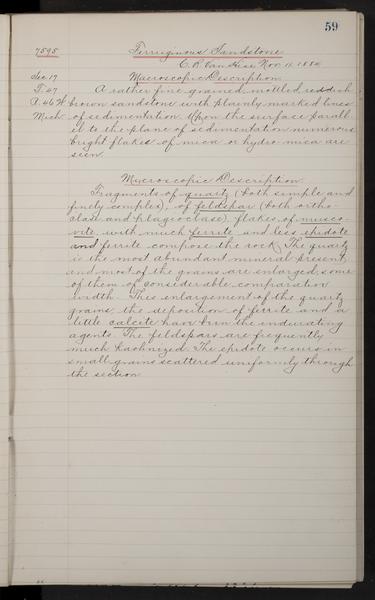 59
7595 Ferruginous Sandstone
C. R. Van Hise Nov. 1884
Sec. 17 Macroscopic Description
T. 47 A rather fine grained mottled reddish
R. 46 W brown sandstone with plainly marked lines
Mich. of sedimentation. Upon the surface parall-
el to the plane of sedimentation numerous
bright flakes of mica or hydro-mica are
seen.
Macroscopic Description.
Fragments of quartz (both simple and
finely complex), of feldspar (both ortho-
clase and plagioclase), flakes of musco-
vite with much ferrite and less epidote
and ferrite compose the rock. The quartz
is the most abundant mineral present,
and most of the grains are enlarged, some
of them of considerable comparative
width. This enlargement of the quartz
grains, the deposition of ferrite and a
little calcite have been the indurating
agents. The feldspars are frequently
much kaolinized. The epidote occurs in
small grains scattered uniformly through
the section